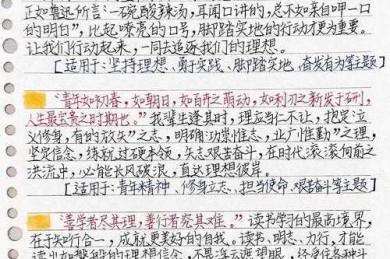 正如鲁迅所言:"一碗酸辣汤,耳闻口讲的,总不如亲自呷一口
的明白",比起嘹亮的口号,脚踏实地的行动才更为重要。
让我们行动起来,一同去追逐我们的理想。
[适用于:坚持理想、勇于实践、脚踏实地、奋发有为等主题]
"青年如初春,如朝日,如百卉之萌动,如利刃之新发于硎,
人生最宝贵之时期也。"我辈生逢其时,理应当仁不让,抱定"立
义修身,有的放矢"之志,明确"功崇惟志,业广惟勤"之理,
坚定信念,练就过硬本领,矢志艰苦奋斗,在时代滚滚向前之
洪流中,必能长风破浪,直达理想彼岸。
[适用于:青年精神、修身立志、担当使命、艰苦奋斗等主题]
"善学者尽其理,善行者究其难。"读书学习的最高境界,
在于知行合一,成就更美好的自我。读书、明志、力行,才能